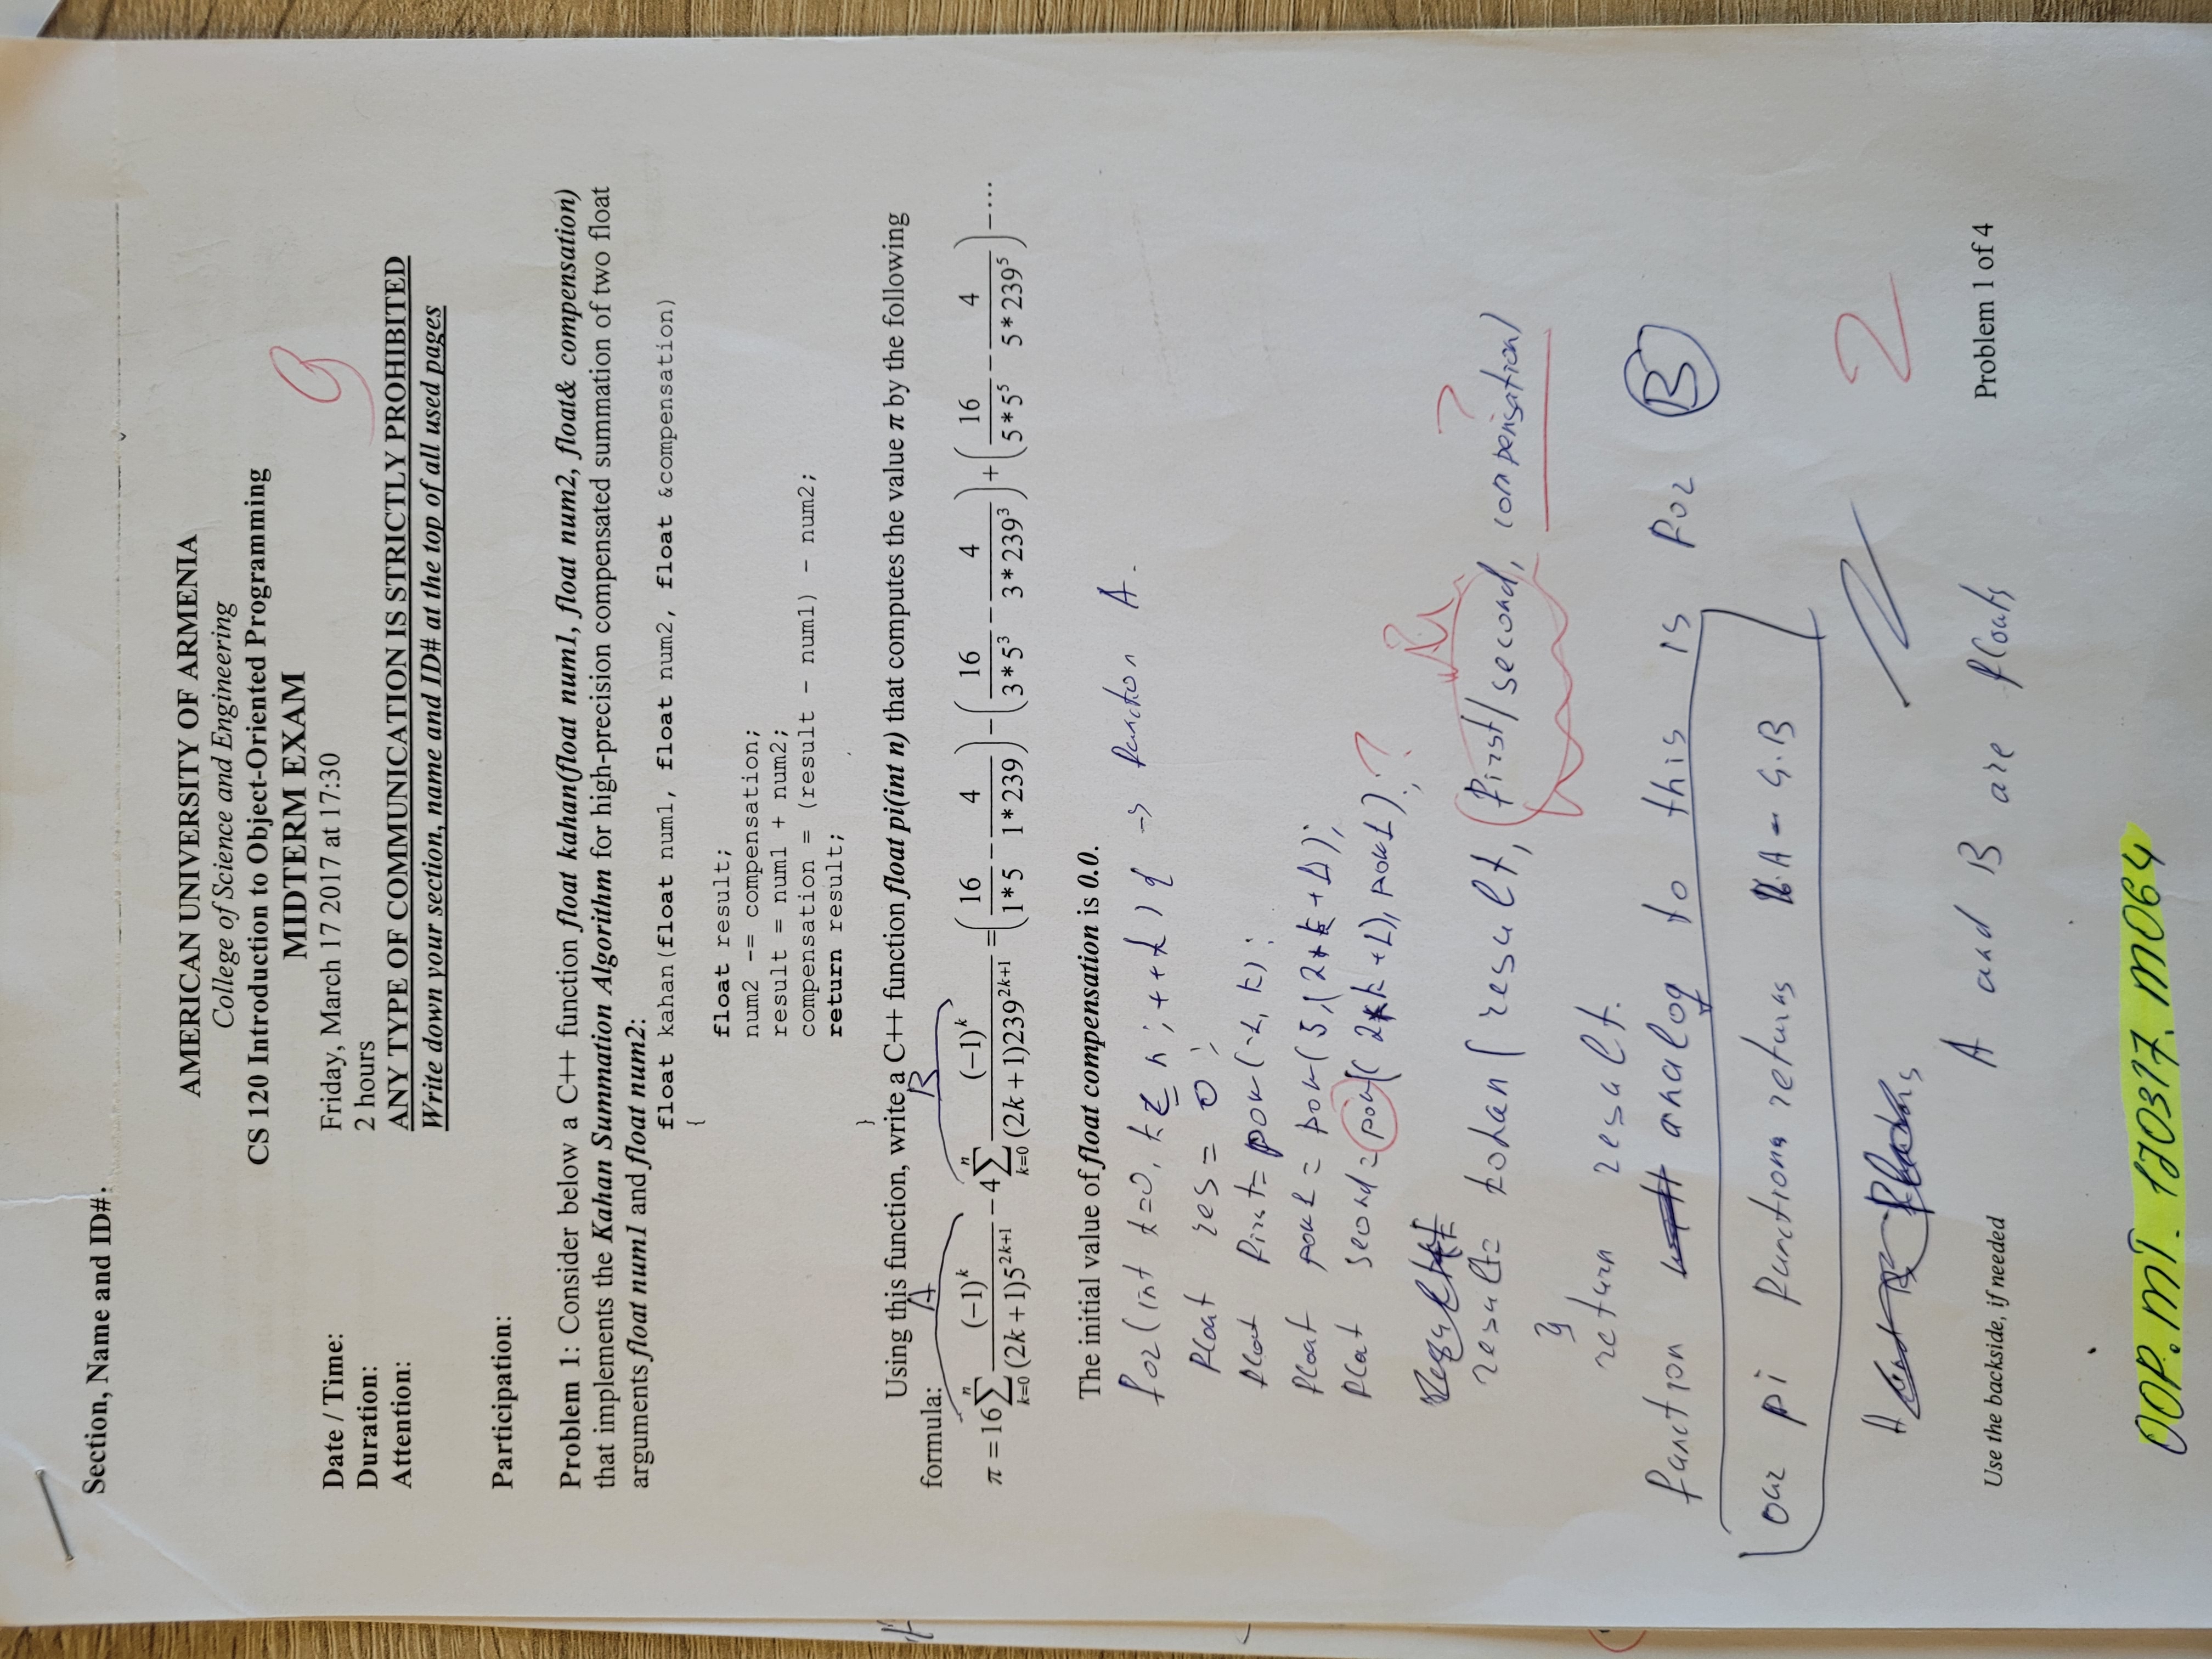 Section, Name and ID#:
AMERICAN UNIVERSITY OF ARMENIA
College of Science and Engineering
CS 120 Introduction to Object-Oriented Programming
MIDTERM EXAM
9
Date / Time: Friday, March 17 2017 at 17:30
Duration: 2 hours
Attention: ANY TYPE OF COMMUNICATION IS STRICTLY PROHIBITED
Write down your section, name and ID# at the top of all used pages
Participation:
Problem 1: Consider below a C++ function float kahan(float num1, float num2, float& compensation)
that implements the Kahan Summation Algorithm for high-precision compensated summation of two float
arguments float num1 and float num2:
float kahan(float num1, float num2, float &compensation)
{
float result;
num2 -= compensation;
result = num1 + num2;
compensation = (result - num1) - num2;
return result;
}
Using this function, write a C++ function float pi(int n) that computes the value π by the following
formula:
A B
π = 16 \sum_{k=0}^{n} \frac{(-1)^k}{(2k+1)5^{2k+1}} - 4 \sum_{k=0}^{n} \frac{(-1)^k}{(2k+1)239^{2k+1}} = \left(\frac{16}{1*5} - \frac{4}{1*239}\right) - \left(\frac{16}{3*5^3} - \frac{4}{3*239^3}\right) + \left(\frac{16}{5*5^5} - \frac{4}{5*239^5}\right) - ⋯
The initial value of float compensation is 0.0.
for(int k=0, k≤ n; ++k) { -> function A.
float res = 0;
float first= pow(-1, k);
float pow1 = pow(5,(2*k+1);
float second= pow(( 2*k+1), pow1); ?
result= kohan( result, first/second, compensation) ?
}
return result.
function analog to this is for B
our pi functions returns 16·A - 4·B
2
A and B are floats
Use the backside, if needed
Problem 1 of 4
OOP.MT.170317.M064